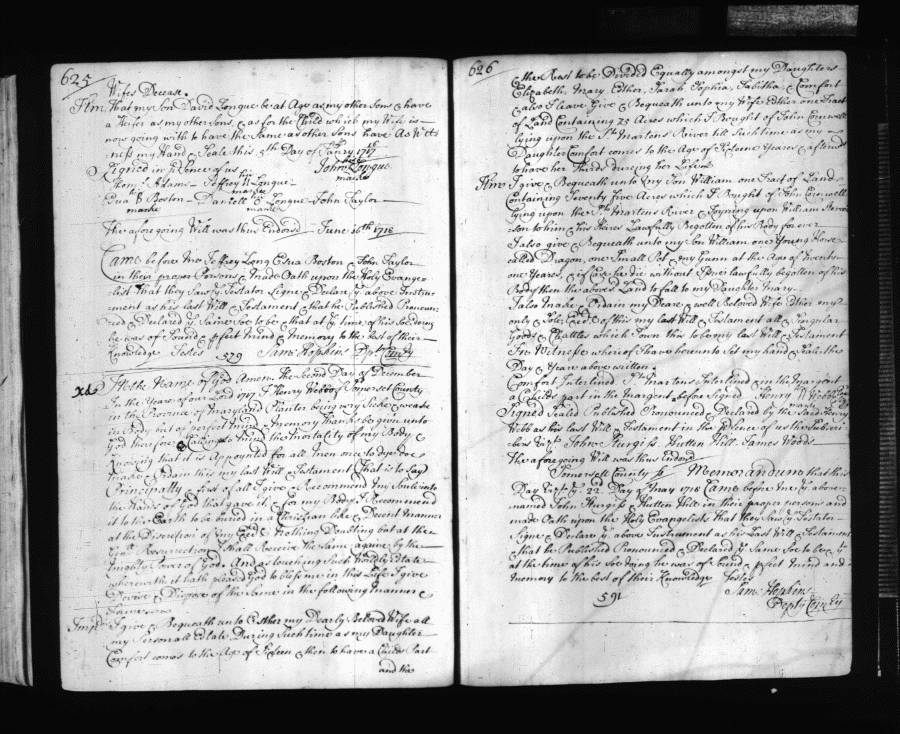 625
Wifes Decease.
Item That my Son David Longue be at Age as my other Sons & have
a Heifer as my other Sons, & as for the Child which my Wife is
now going with to have the Same as other Sons have As Witt-
ness my Hand & Seale this 5th Day of Janry 1717/18
Signed in presence of us
John Longue
his
marke
Henry Adams - Jeffrey Longue
marke
Esua B Boston - Daniell Longue - John Taylor
marke marke
The afore going Will was thus Endorsd June 16th 1718
Came before me Jeffrey Long Esua Boston & John Taylor
in their proper Persons & made Oath upon the Holy Evange-
list that they saw ye Testator Signe & Declare ye above Instru-
ment as his last Will & Testament & that he Published Pronoun-
ced & Declared ye Same Soe to be & that at ye time of his Soe doing
he was of Sound & pfect mind & memory to the best of their
Knowledge Testes 579 Sam: Hopkins Dpt Comry
In the Name of God Amen. The Second Day of December
In the Year of our Lord 1717 I Henry Webb of Somerset County
in the Province of Maryland Planter being very Sicke & weake
in Body but of perfect mind & memory thanks be given unto
God therefore Calling to mind the Mortality of my Body &
Knowing that it is Appointed for all men once to dye doe
make & Ordain this my last Will & Testament (that is to say)
Principally & first of all I give & Recommend my Soule into
the Hands of God that gave it & for my Body I Recommend
it to the Earth to be buried in a Christian like & Decent manner
at the Discretion of my Nothing Doubting but at the
Gen:ll Resurrection I Shall Receive the same againe by the
mighty Power of God. And as touching Such Worldly Estate
wherewith it hath pleasd God to bless me in this Life I give
Devise & Dispose of the same in the following manner &
forme
Impr: I give & Bequeath unto Esther my Dearly Beloved Wife all
my Personall Estate During Such time as my Daughter
Comfort comes to the Age of Fifteen & then to have a Childs Part
and the
626
& the Rest to be Divided Equally amongst my Daughters
Elizabeth, Mary, Esther, Sarah, Sophia, Tabitha & Comfort
& also I Leave Give & Bequeath unto my Wife Esther one Tract
of Land Containing 75 Acres which I Bought of John Cornwell
lying upon the St Martens River till Such time as my
Daughter Comfort comes to the Age of Fifteene Yeares & afterwds
to have her Thirds dureing her Life
Item I give & Bequeath unto my Son William one Tract of Land
Containing Seventy five Acres which I Bought of John Cornwell
lying upon the St Martens River Joyning upon William
son to him & his Heires Lawfully Begotten of his Body for ever
I also give & Bequeath unto my Son William one Young Horse
called Dragon, one Small Pot & my Gunn at the Age of Twenty
one Yeares, & if Case he Die without Issue lawfully begotten of his
Body then the above Land to fall to my Daughter Mary.
I also make & Ordain my Deare & well Beloved Wife Esther my
only & Sole Exec:x of this my last Will & Testament all & Singular
Goods & Chattles which I own this to be my last Will & Testament
In Witness whereof I have hereunto Set my hand & Seale the
Day & Yeare above written.
Comfort Interlined St Martens Interlined in the Margent
a Childs part in the Margent before Signed Henry W Webb
marke
Signed Sealed Published Pronounced & Declared by the said Henry
Webb as his last Will & Testament in the presence of us the Subscri-
bers Vizt John Sturgiss Hutten Hill James Woods
The afore going Will was thus Endorsd
Somersett County Ss Memorandum that this
Day Vizt ye 22 Day of May 1718 Came before me ye above
named John Sturgiss & Hutten Hill in their proper persons and
made Oath upon the Holy Evangelists that they Saw ye Testator
Signe & Declare ye above Instrument as his Last Will & Testament
that he Published Pronounced & Declared ye Same Soe to be & yt
at the time of his Soe doing he was of Sound & pfect mind and
memory to the best of their Knowledge Testes
Sam: Hopkins
591
Dept Comry